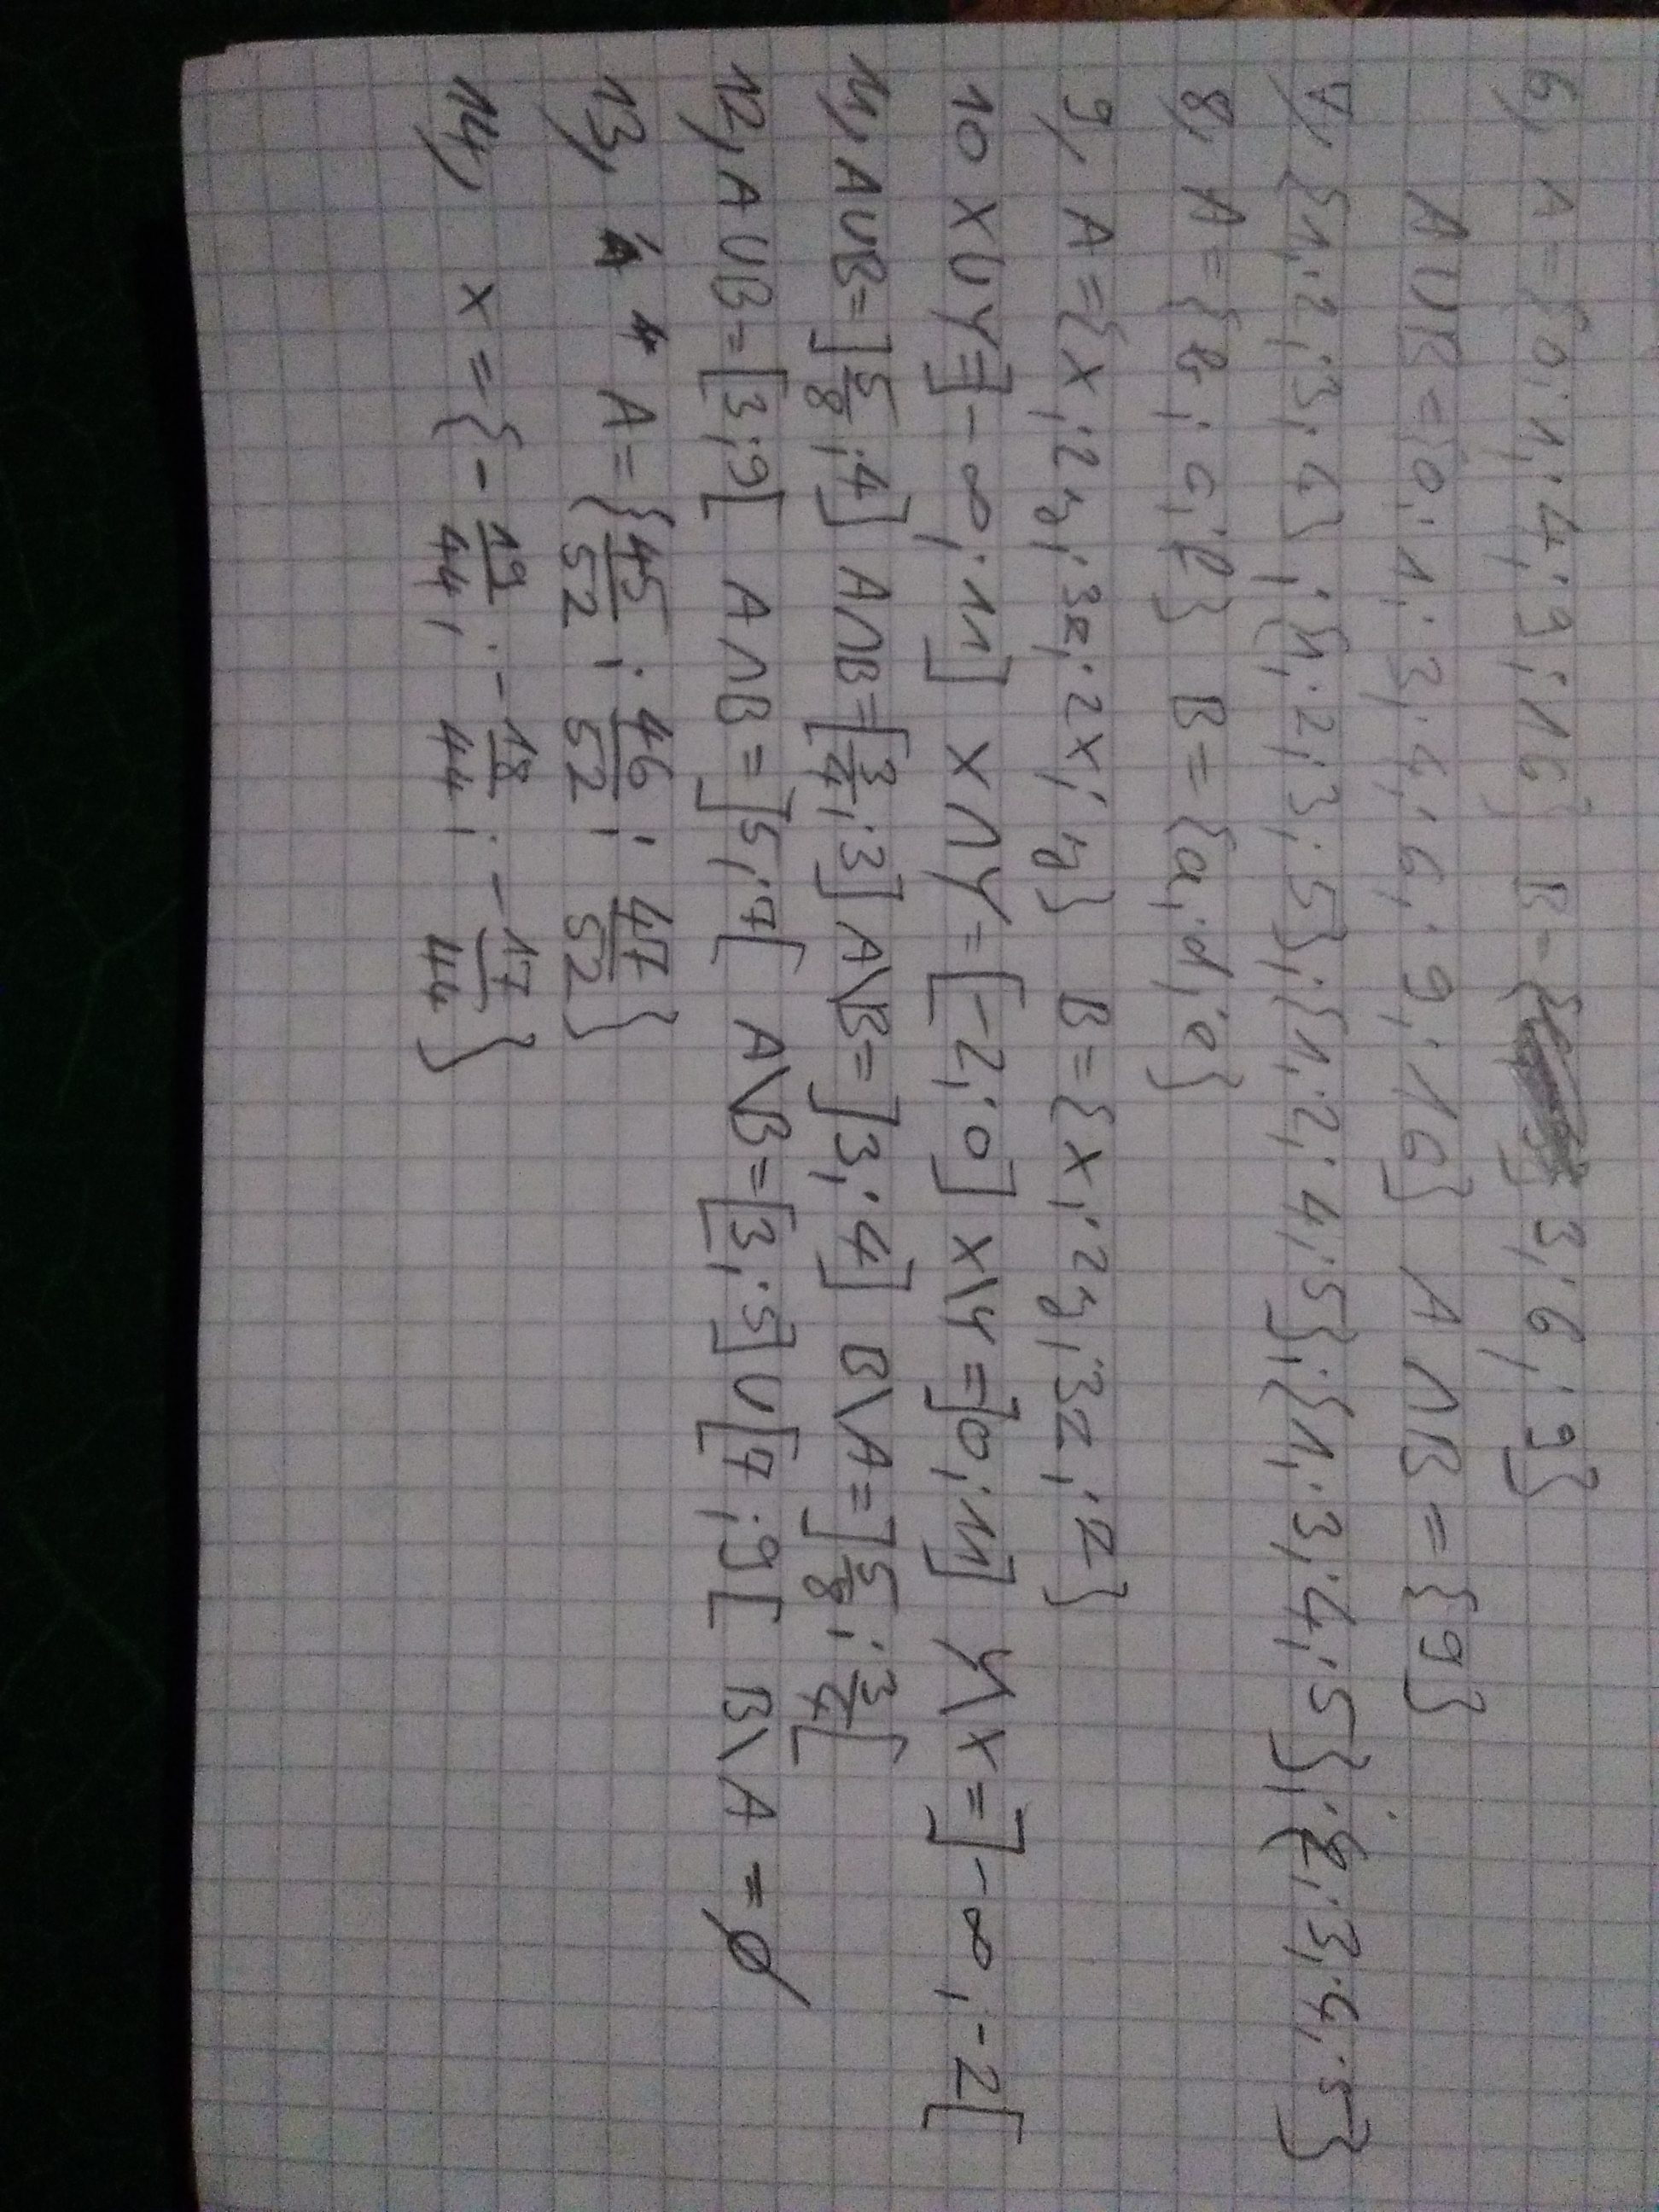 6, A = {0; 1; 4; 9; 16} B = { 3; 6; 9}
A ∪ B = {0; 1; 3; 4; 6; 9; 16} A ∩ B = {9}
7, {1; 2; 3; 4}; {1; 2; 3; 5}; {1; 2; 4; 5}; {1; 3; 4; 5}; {2; 3; 4; 5}
8, A = {b; c; f} B = {a; d; e}
9, A = {x; 2y; 3z; 2x; y} B = {x; 2y; 3z; z}
10 X ∪ Y = ]-∞; 11] X ∩ Y = [-2; 0] X\Y = ]0; 11] Y\X = ]-∞; -2[
11, A∪B = ]5/8; 4] A∩B = [3/4; 3] A\B = ]3; 4] B\A = ]5/8; 3/4[
12, A∪B = [3; 9[ A∩B = ]5; 7[ A\B = [3; 5] ∪ [7; 9[ B\A = ∅
13, A = {45/52; 46/52; 47/52}
14, x = {-19/44; -18/44; -17/44}